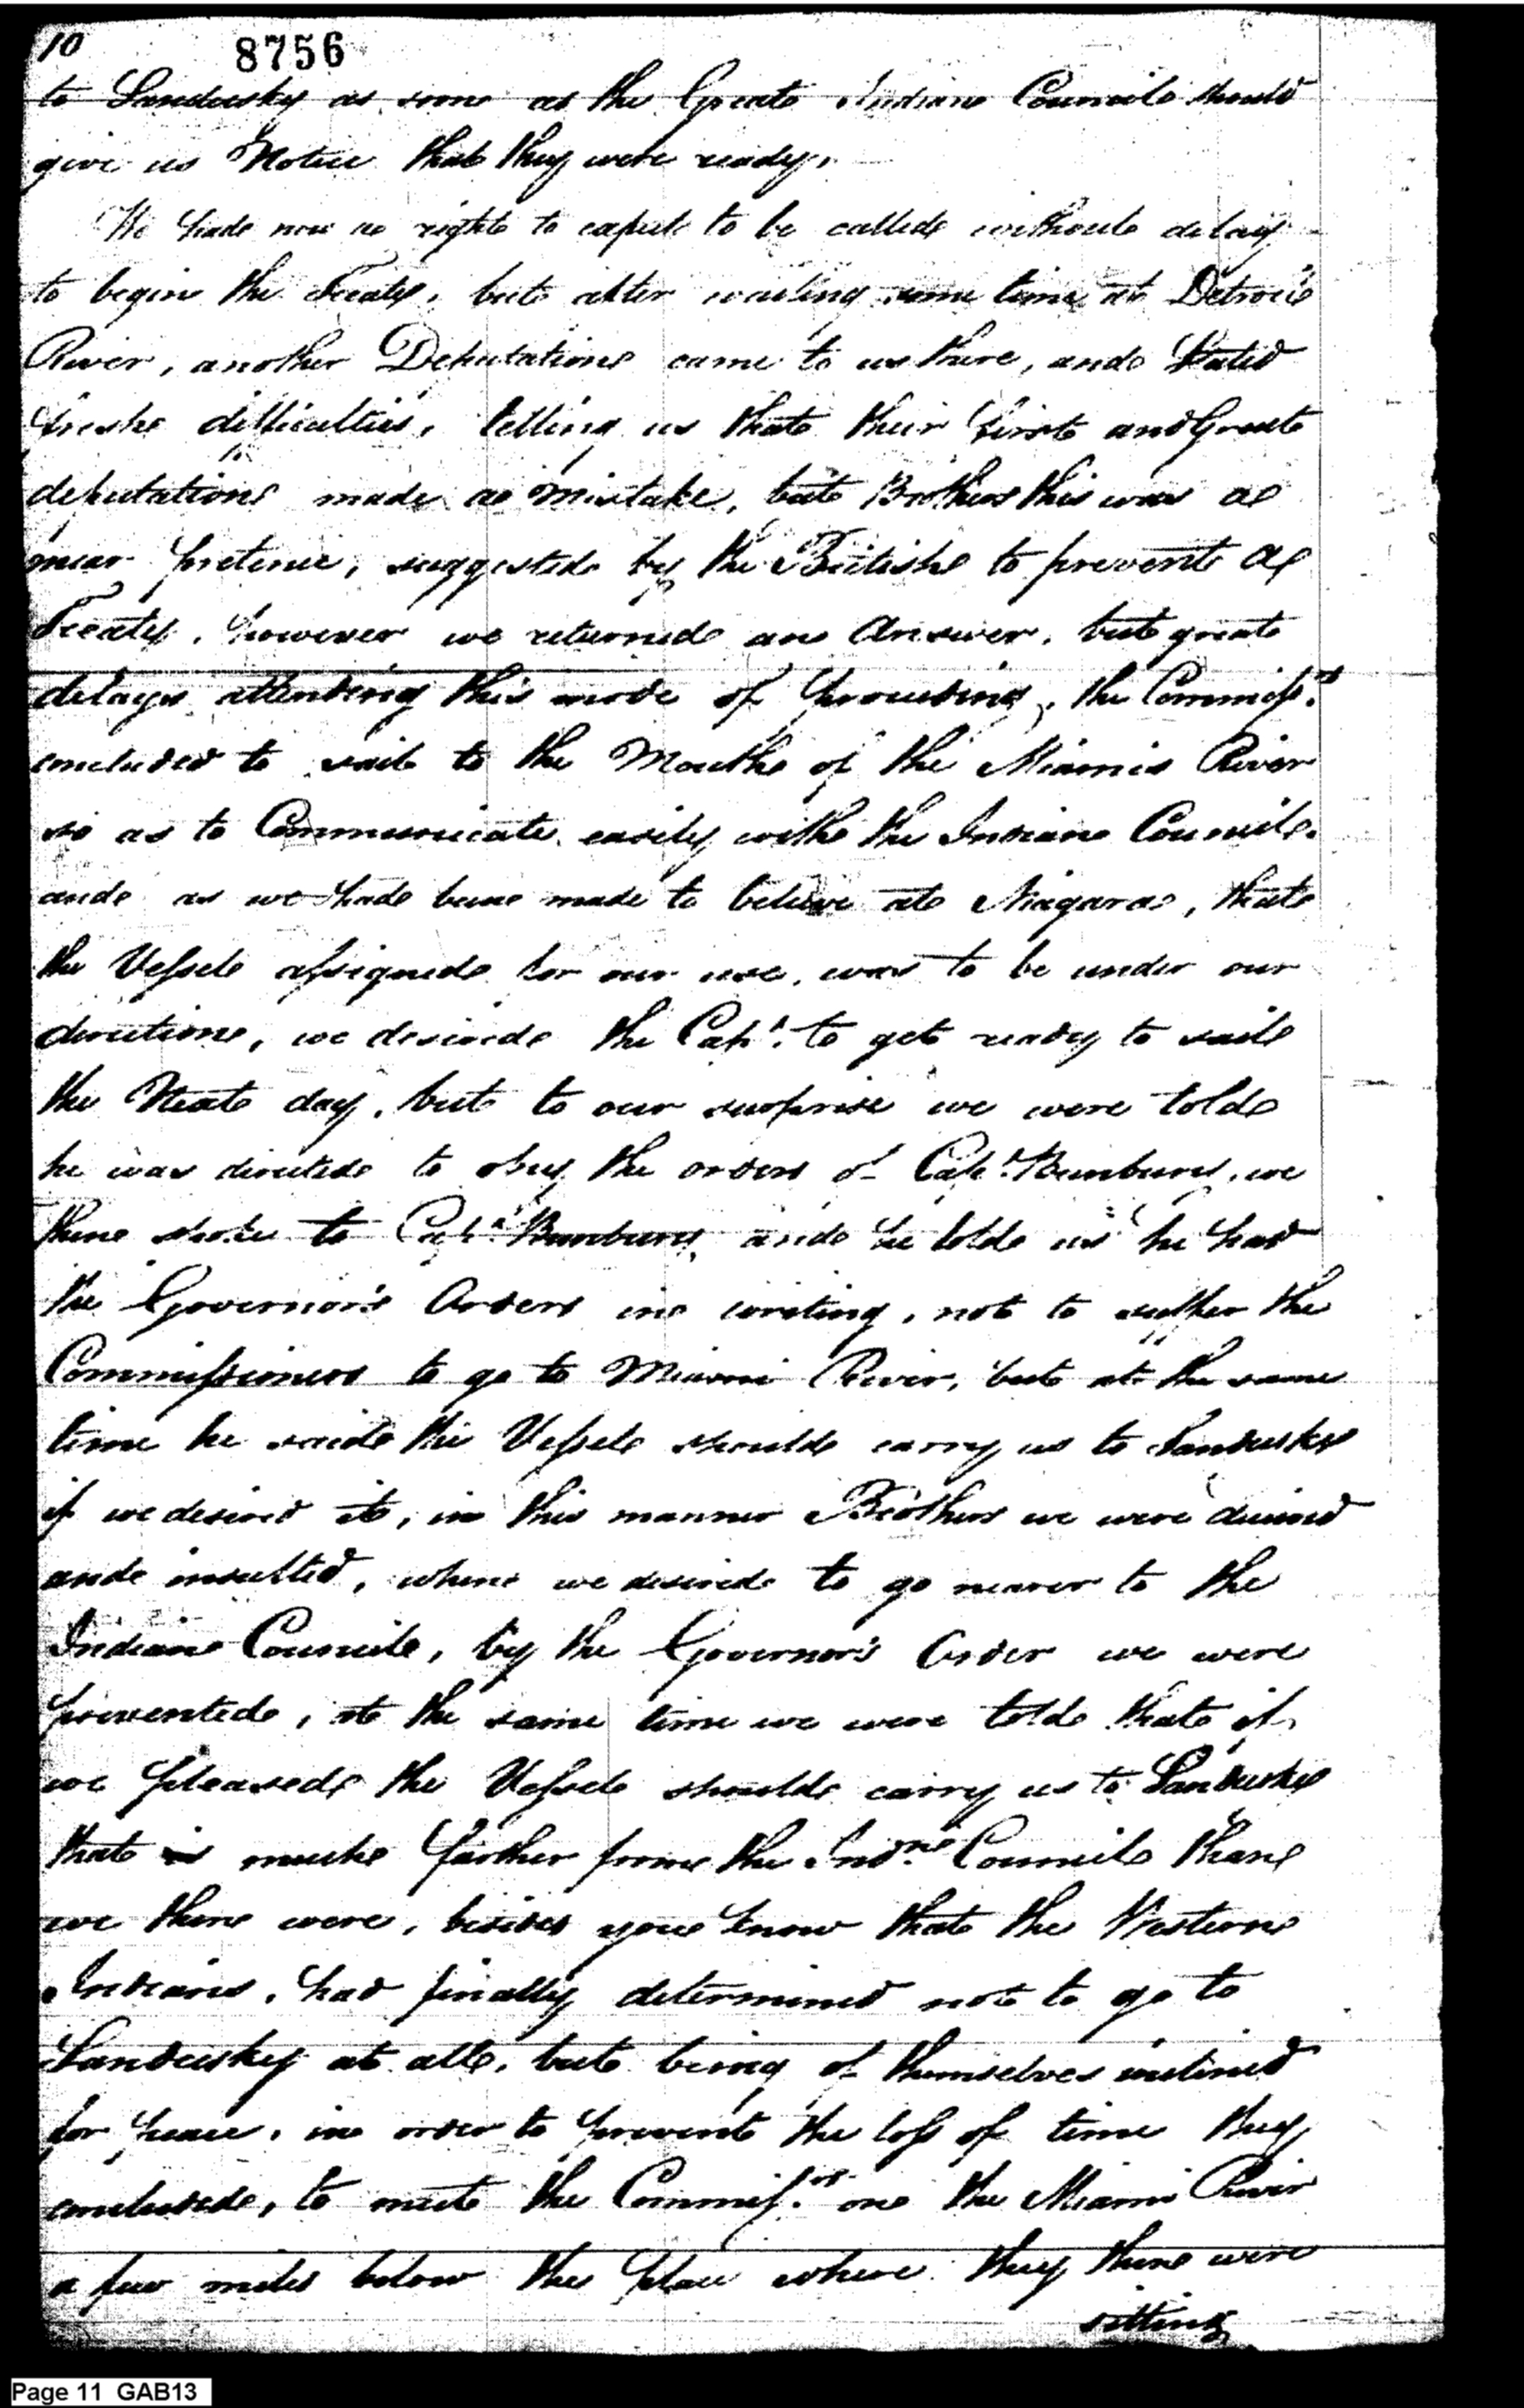 10
8756
to Sandusky as soon as the Great Indian Council should
give us Notice that they were ready.
We had now a right to expect to be called without delay
to begin the Treaty, but after waiting some time at Detroit
River, another Deputation came to us there, and stated
fresh difficulties, telling us that their first and Great
deputation made a mistake, but Brothers this was a
mear pretence, suggested by the British to prevent a
Treaty, however we returned an Answer, but great
delays attending this mode of proceeding, the Commiss.rs
concluded to sail to the Mouth of the Miamis River
so as to Communicate easily with the Indian Council.
and as we had been made to believe at Niagara, that
the Vessel assigned for our use, was to be under our
direction, we desired the Capt. to get ready to sail
the Next day, but to our surprise we were told
he was directed to obey the orders of Capt. Bunbury, we
then spoke to Capt. Bunbury, and he told us he had
the Governor's Orders in writing, not to suffer the
Commissioners to go to Miami River, but at the same
time he said the Vessel should carry us to Sandusky
if we desired it, in this manner Brothers we were
and insulted, when we desired to go nearer to the
Indian Council, by the Governor's Order we were
prevented, at the same time we were told that if
we pleased the Vessel should carry us to Sandusky
that is much farther from the Indn. Council than
we then were, besides you know that the Western
Indians, had finally determined not to go to
Sandusky at all, but being of themselves inclined
for peace, in order to prevent the loss of time they
concluded, to meet the Commiss.rs on the Miami River
a few miles below the place where they then were
sitting
Page 11 GAB13